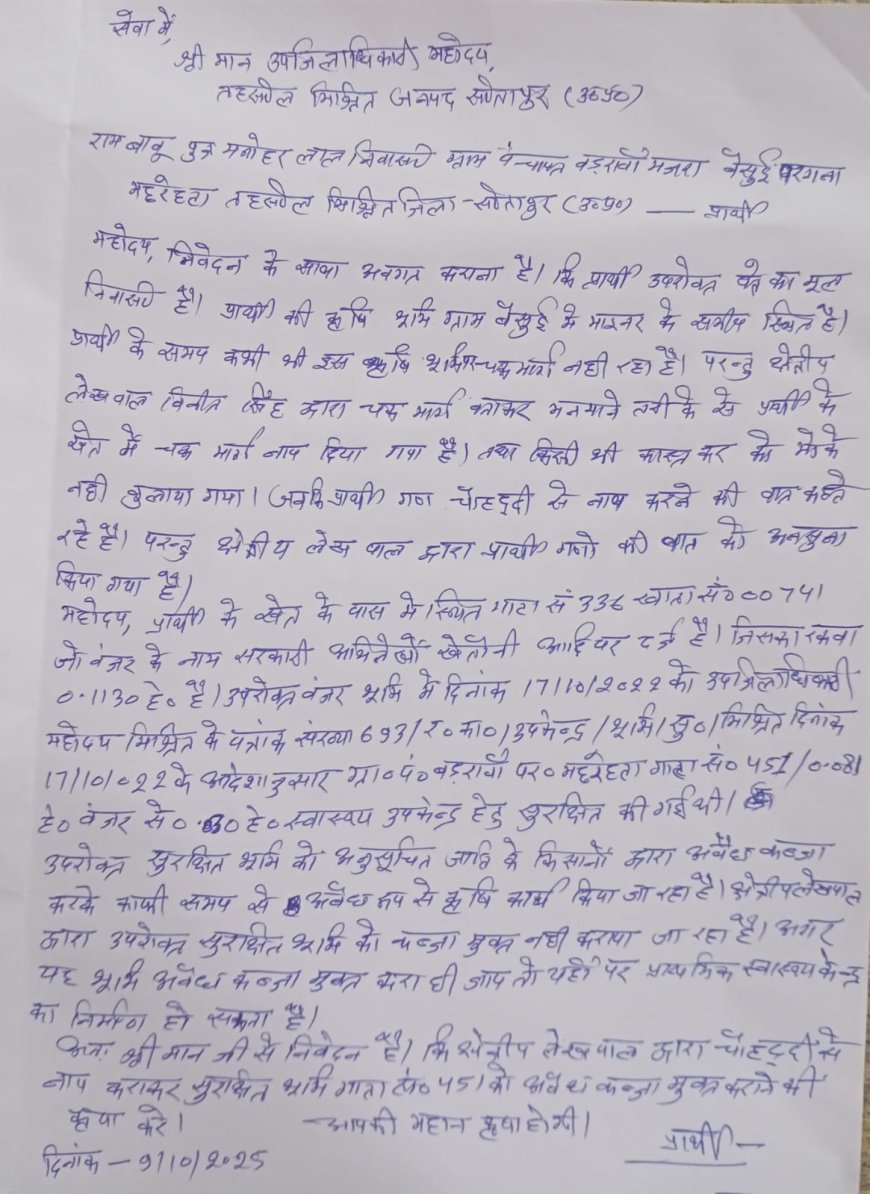 सेवा में,
श्री मान उपजिलाधिकारी महोदय,
तहसील मिश्रित जनपद सीतापुर (उ०प्र०)
राम बाबू पुत्र मनोहर लाल निवासी ग्राम पंचायत बड़रावाँ मजरा वेसुई परगना
मछरेहटा तहसील मिश्रित जिला - सीतापुर (उ०प्र०) — प्रार्थी
महोदय, निवेदन के साथ अवगत कराना है। कि प्रार्थी उपरोक्त पते का मूल
निवासी है। प्रार्थी की कृषि भूमि ग्राम वेसुई में माइनर के समीप स्थित है।
प्रार्थी के समय कभी भी इस कृषि भूमि पर चक मार्ग नही रहा है। परन्तु क्षेत्रीय
लेखपाल विनीत सिंह द्वारा चक मार्ग बताकर मनमाने तरीके से प्रार्थी के
खेत में चक मार्ग नाप दिया गया है। तथा किसी भी कास्तकार को मौके
नही बुलाया गया। जबकि प्रार्थी गण चौहद्दी से नाप करने की बात कहते
रहे है। परन्तु क्षेत्रीय लेखपाल द्वारा प्रार्थी गणो की बात को अनसुना
किया गया है।
महोदय, प्रार्थी के खेत के पास मे स्थित गाटा सं 336 खाता सं० 00741
जो बंजर के नाम सरकारी अभिलेखों खेतौनी आदि पर दर्ज है। जिसका रकबा
0.1130 हे० है। उपरोक्त बंजर भूमि में दिनांक 17/10/2022 को उपजिलाधिकारी
महोदय मिश्रित के पत्रांक संख्या 693/र०का०/उपकेन्द्र/भूमि/सु०/मिश्रित दिनांक
17/10/022 के आदेशानुसार ग्रा० पं० बड़रावाँ पर० मछरेहटा गाटा सं० 451/0.081
हे० बंजर से 0.30 हे० स्वास्थ्य उपकेन्द्र हेतु सुरक्षित की गई थी।
उपरोक्त सुरक्षित भूमि को अनुसूचित जाति के किसानों द्वारा अवैध कब्जा
करके काफी समय से अवैध रूप से कृषि कार्य किया जा रहा है। क्षेत्रीय लेखपाल
द्वारा उपरोक्त सुरक्षित भूमि को कब्जा मुक्त नही कराया जा रहा है। अगर
यह भूमि अवैध कब्जा मुक्त करा दी जाय तो यहाँ पर प्राथमिक स्वास्थ्य केन्द्र
का निर्माण हो सकता है।
अतः श्री मान जी से निवेदन है। कि क्षेत्रीय लेखपाल द्वारा चौहद्दी से
नाप कराकर सुरक्षित भूमि गाटा सं० 451 को अवैध कब्जा मुक्त कराने की
कृपा करे। - आपकी महान कृपा होगी।
प्रार्थी —
दिनांक - 9/10/2025